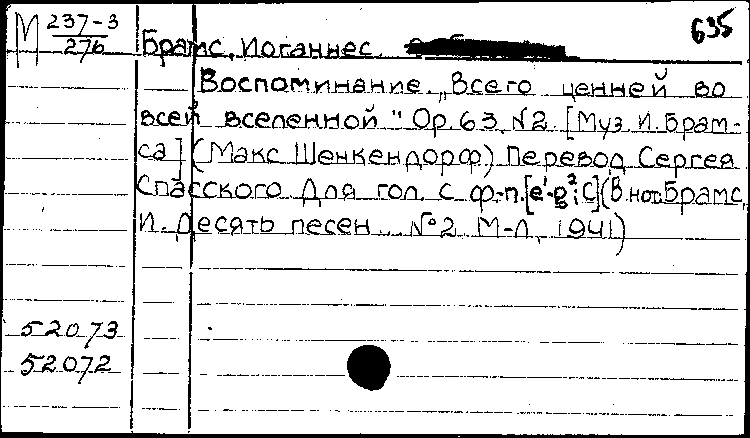 М 237-3/276
635
Брамс, Иоганнес
Воспоминание. „Всего ценней во
всей вселенной" Op. 63, №2. [Муз. И. Брам-
са] (Макс Шенкендорф) Перевод Сергея
Спасского. Для гол. с ф.-п. [e¹-g²; C] (В нот. Брамс,
И. Десять песен. №2. М-Л, 1941)
52073
52072